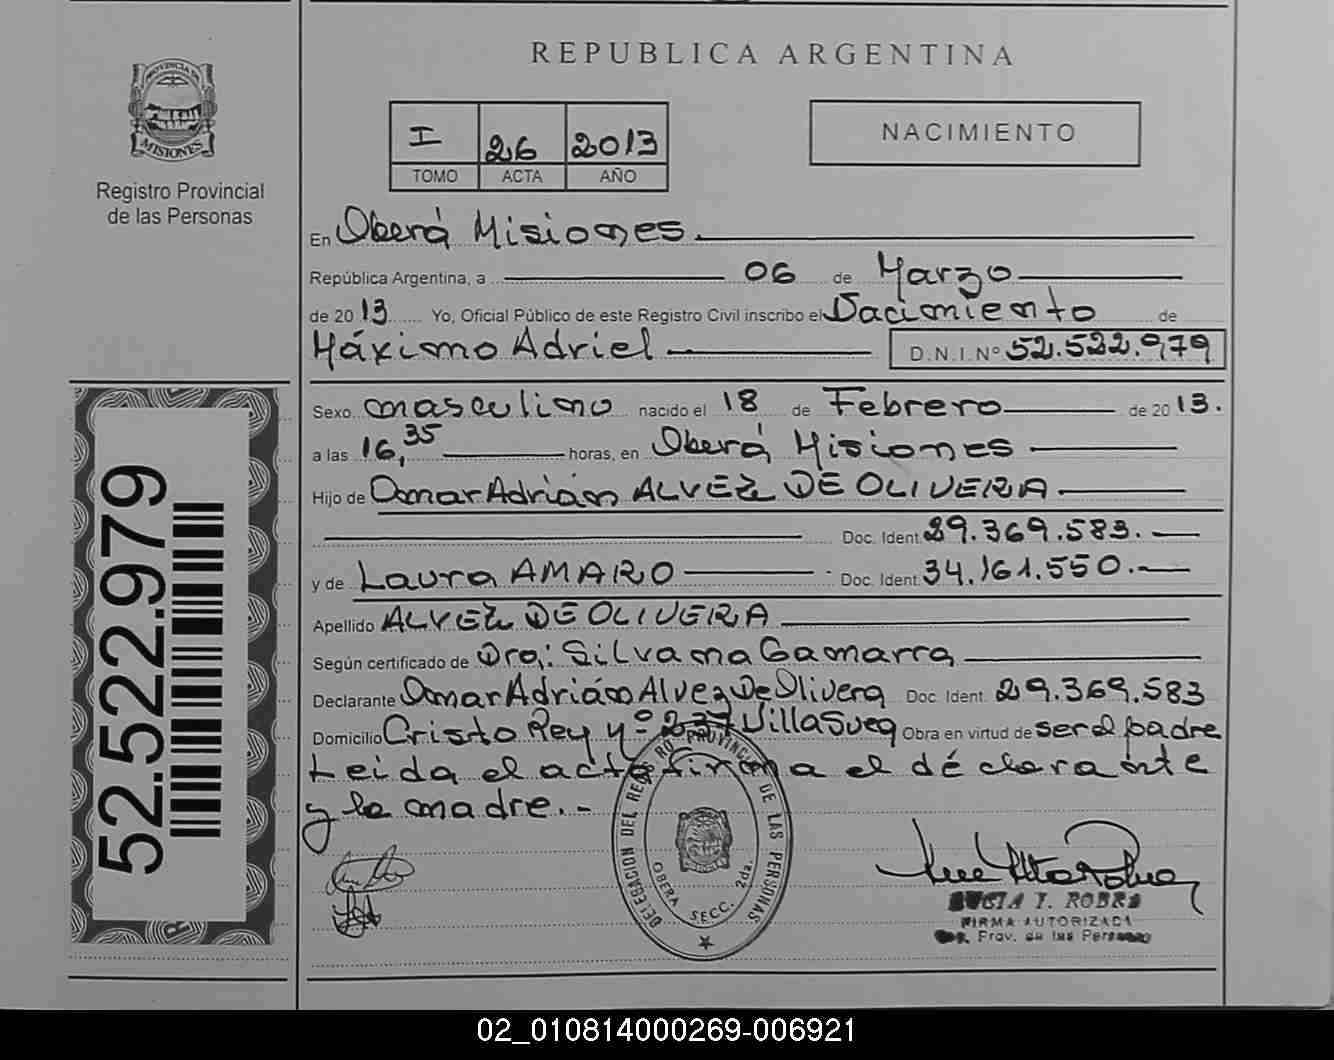 REPUBLICA ARGENTINA
PROVINCIA DE
MISIONES
Registro Provincial
de las Personas
I 26 2013
TOMO ACTA AÑO
NACIMIENTO
En Oberá Misiones.
República Argentina, a 06 de Marzo
de 2013 Yo, Oficial Público de este Registro Civil inscribo el Nacimiento de
Máximo Adriel D.N.I.Nº 52.522.979
Sexo masculino nacido el 18 de Febrero de 2013.
a las 16,35 horas, en Oberá, Misiones
Hijo de Omar Adrián ALVEZ DE OLIVERA
Doc. Ident. 29.369.583.
y de Laura AMARO Doc. Ident. 34.161.550.
Apellido ALVEZ DE OLIVERA
Según certificado de Dra.: Silvana Gamarra
Declarante Omar Adrián Alvez De Olivera Doc. Ident. 29.369.583
Domicilio Cristo Rey Nº 237 Villa Svea Obra en virtud de ser el padre
Leida el acta firma el declarante
y la madre.-
52.522.979
DELEGACION DEL REGISTRO PROVINCIAL DE LAS PERSONAS
OBERA SECC. 2da.
FIRMA AUTORIZADA
Prov. de las Personas
02_010814000269-006921